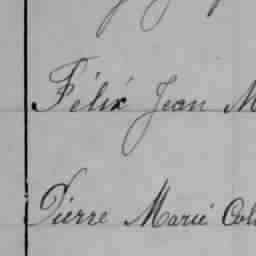 Félix Jean M
Pierre Marie Col